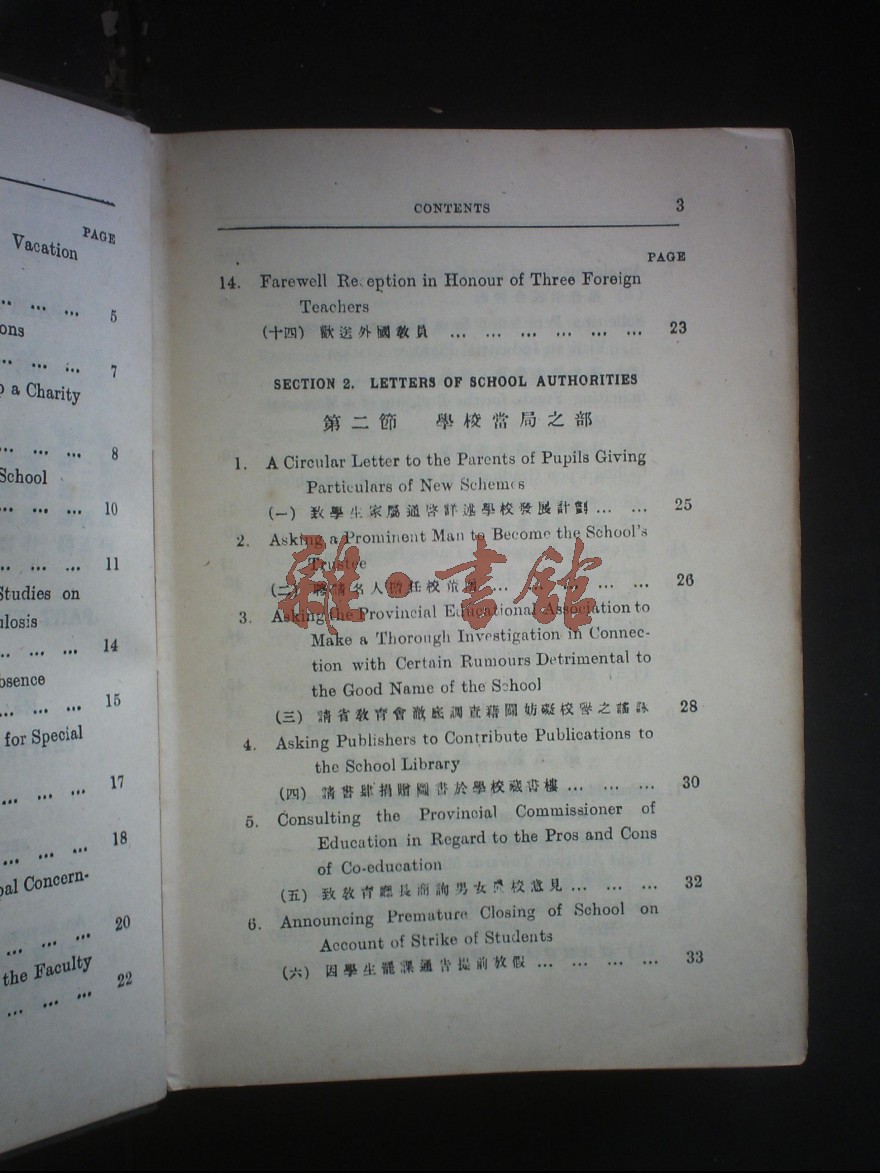 PAGE
Vacation
... ... ... 5
ons
... ... ... 7
p a Charity
... ... ... 8
School
... ... ... 10
... ... ... 11
Studies on
ulosis
... ... ... 14
bsence
... ... ... 15
for Special
... ... ... 17
... ... ... 18
pal Concern-
... ... ... 20
the Faculty
... ... ... 22
CONTENTS 3
PAGE
14. Farewell Reception in Honour of Three Foreign
Teachers
(十四) 歡送外國教員 ... ... ... ... ... ... 23
SECTION 2. LETTERS OF SCHOOL AUTHORITIES
第二節 學校當局之部
1. A Circular Letter to the Parents of Pupils Giving
Particulars of New Schemes
(一) 致學生家屬通啓詳述學校發展計劃 ... ... 25
2. Asking a Prominent Man to Become the School's
Trustee
(二) 聘請名人擔任校董 ... ... ... ... ... 26
3. Asking the Provincial Educational Association to
Make a Thorough Investigation in Connec-
tion with Certain Rumours Detrimental to
the Good Name of the School
(三) 請省教育會澈底調查藉關妨礙校譽之謠詠 28
4. Asking Publishers to Contribute Publications to
the School Library
(四) 請書肆捐贈圖書於學校藏書樓 ... ... ... 30
5. Consulting the Provincial Commissioner of
Education in Regard to the Pros and Cons
of Co-education
(五) 致教育廳長商詢男女校意見 ... ... ... 32
6. Announcing Premature Closing of School on
Account of Strike of Students
(六) 因學生罷課通告提前放假 ... ... ... ... 33
雜·書館